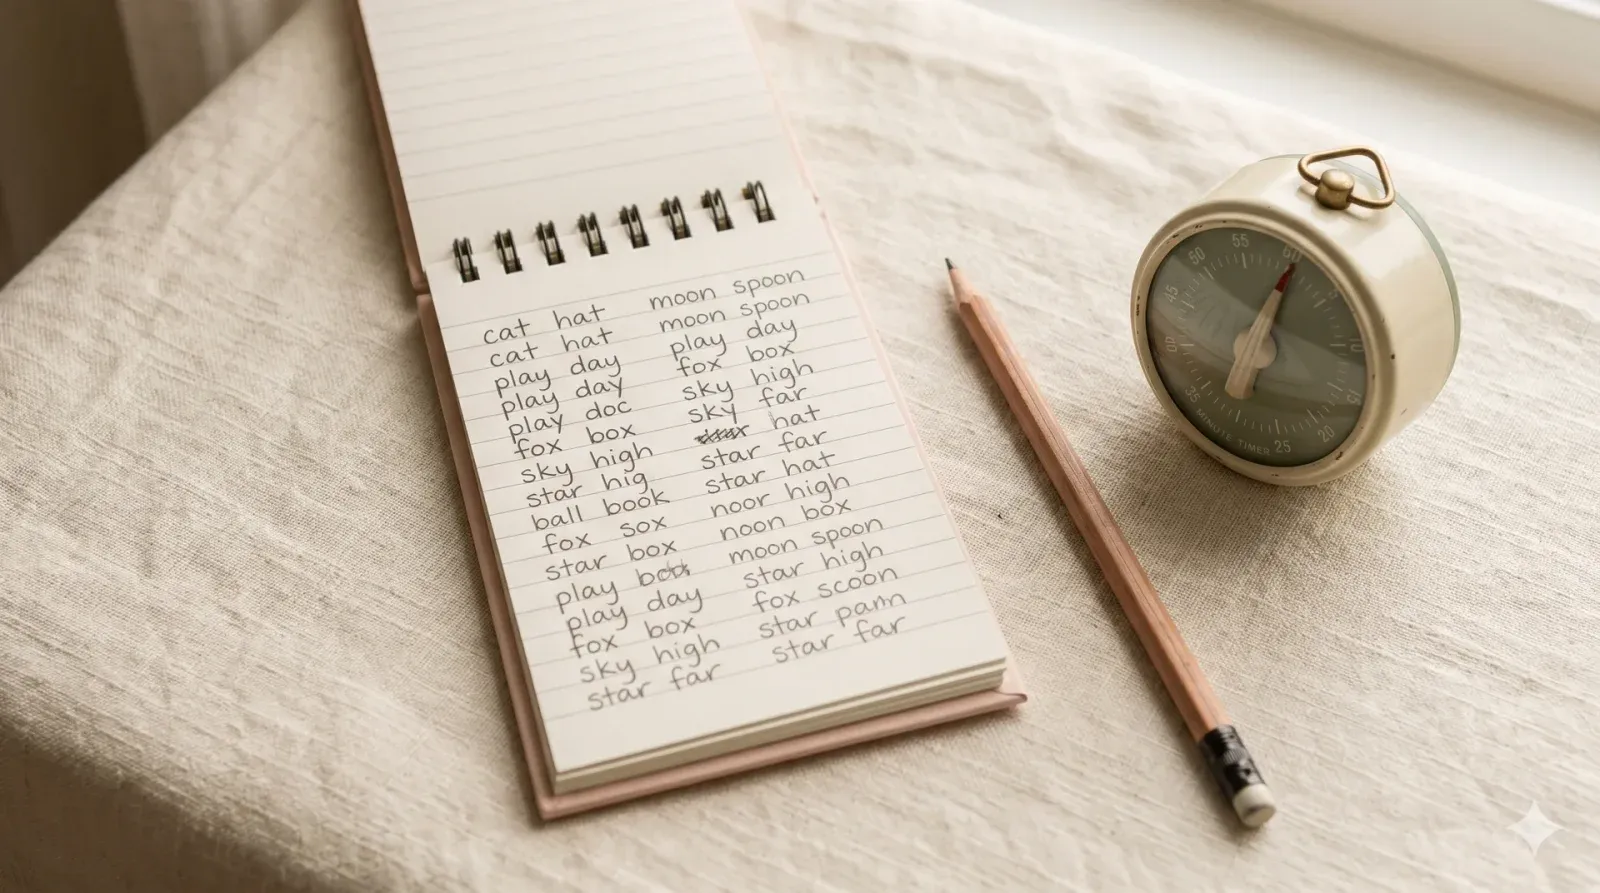 cat hat moon spoon
cat hat moon spoon
play day play day
play day fox box
play doc sky high
fox box sky far
sky high hat
star hig star far
ball book star hat
fox sox noor high
star box noon box
play moon spoon
play day star high
fox box fox scoon
sky high star
star far star far
60
5
10
15
20
25
35
45
50
55
MINUTE TIMER